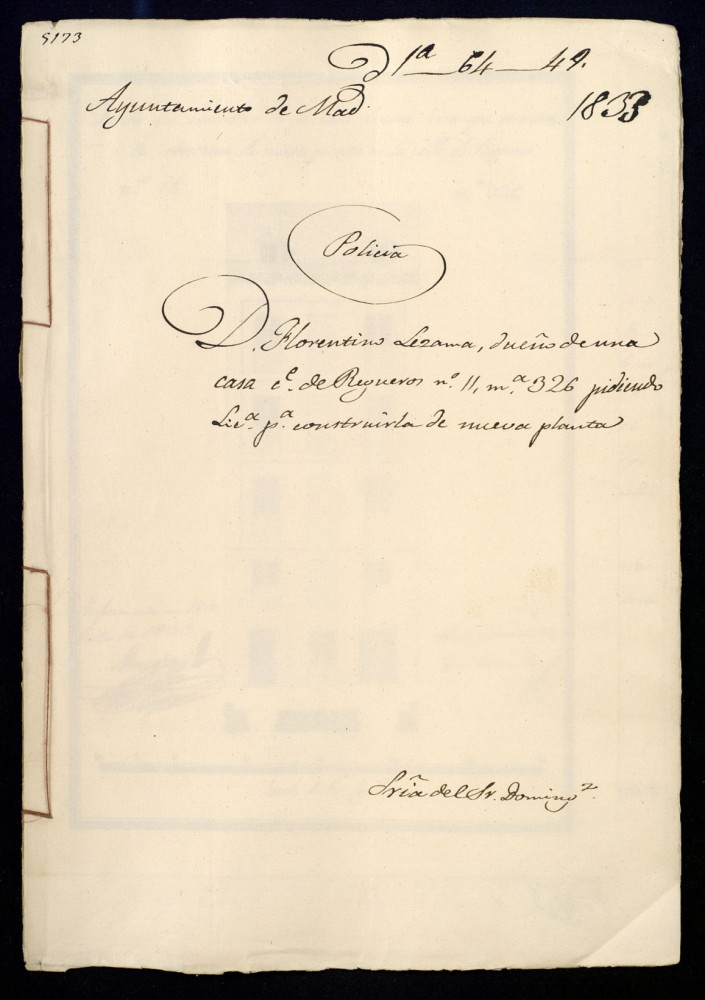 5173
1ª 64 49.
Ayuntamiento de Mad.
1833
Policía
D. Florentino Lezama, dueño de una
casa c.ᵉ de Regueros n.º 11, m.ª 326 pidiendo
Lic.ª p.ª construirla de nueva planta
Sría del Sr. Doming.ᶻ